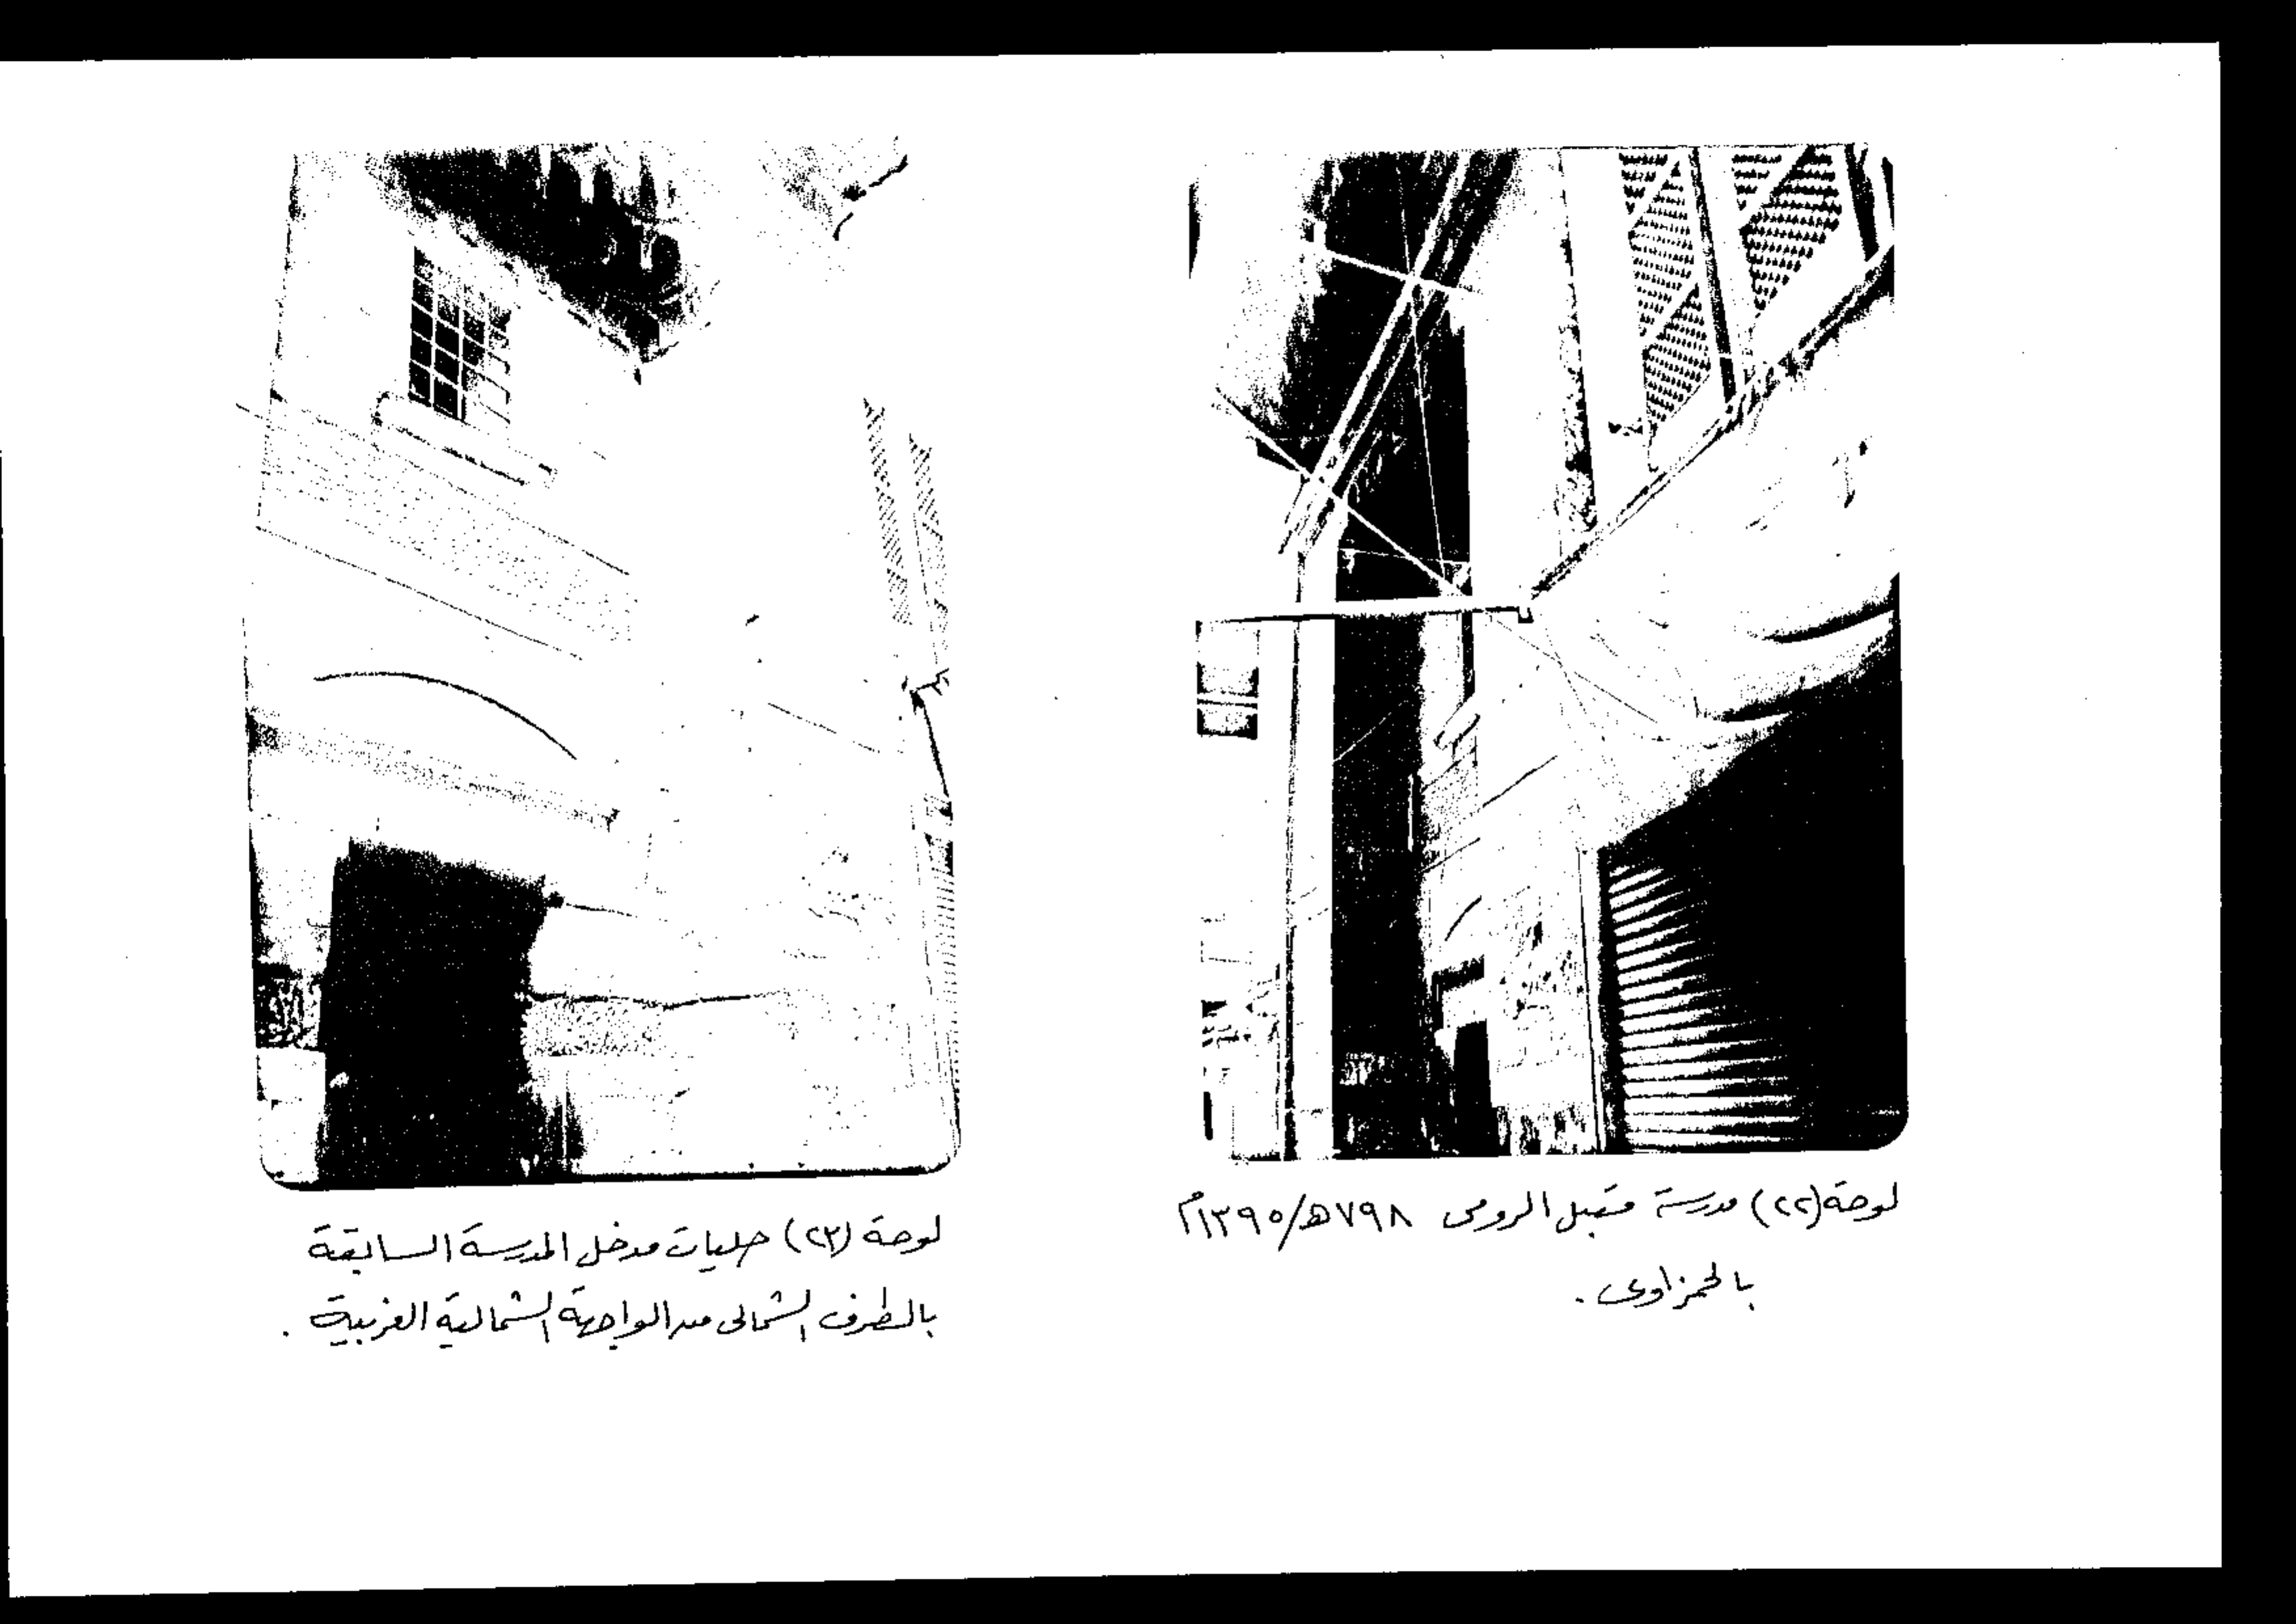 لوحة (٢٢) مدرسة مقبل الرومى ٧٩٨هـ/١٣٩٥م
بالحمزاوى .
لوحة (٢٣) حليات مدخل المدرسة السابقة
بالطرف الشمالى من الواجهة الشمالية الغربية .